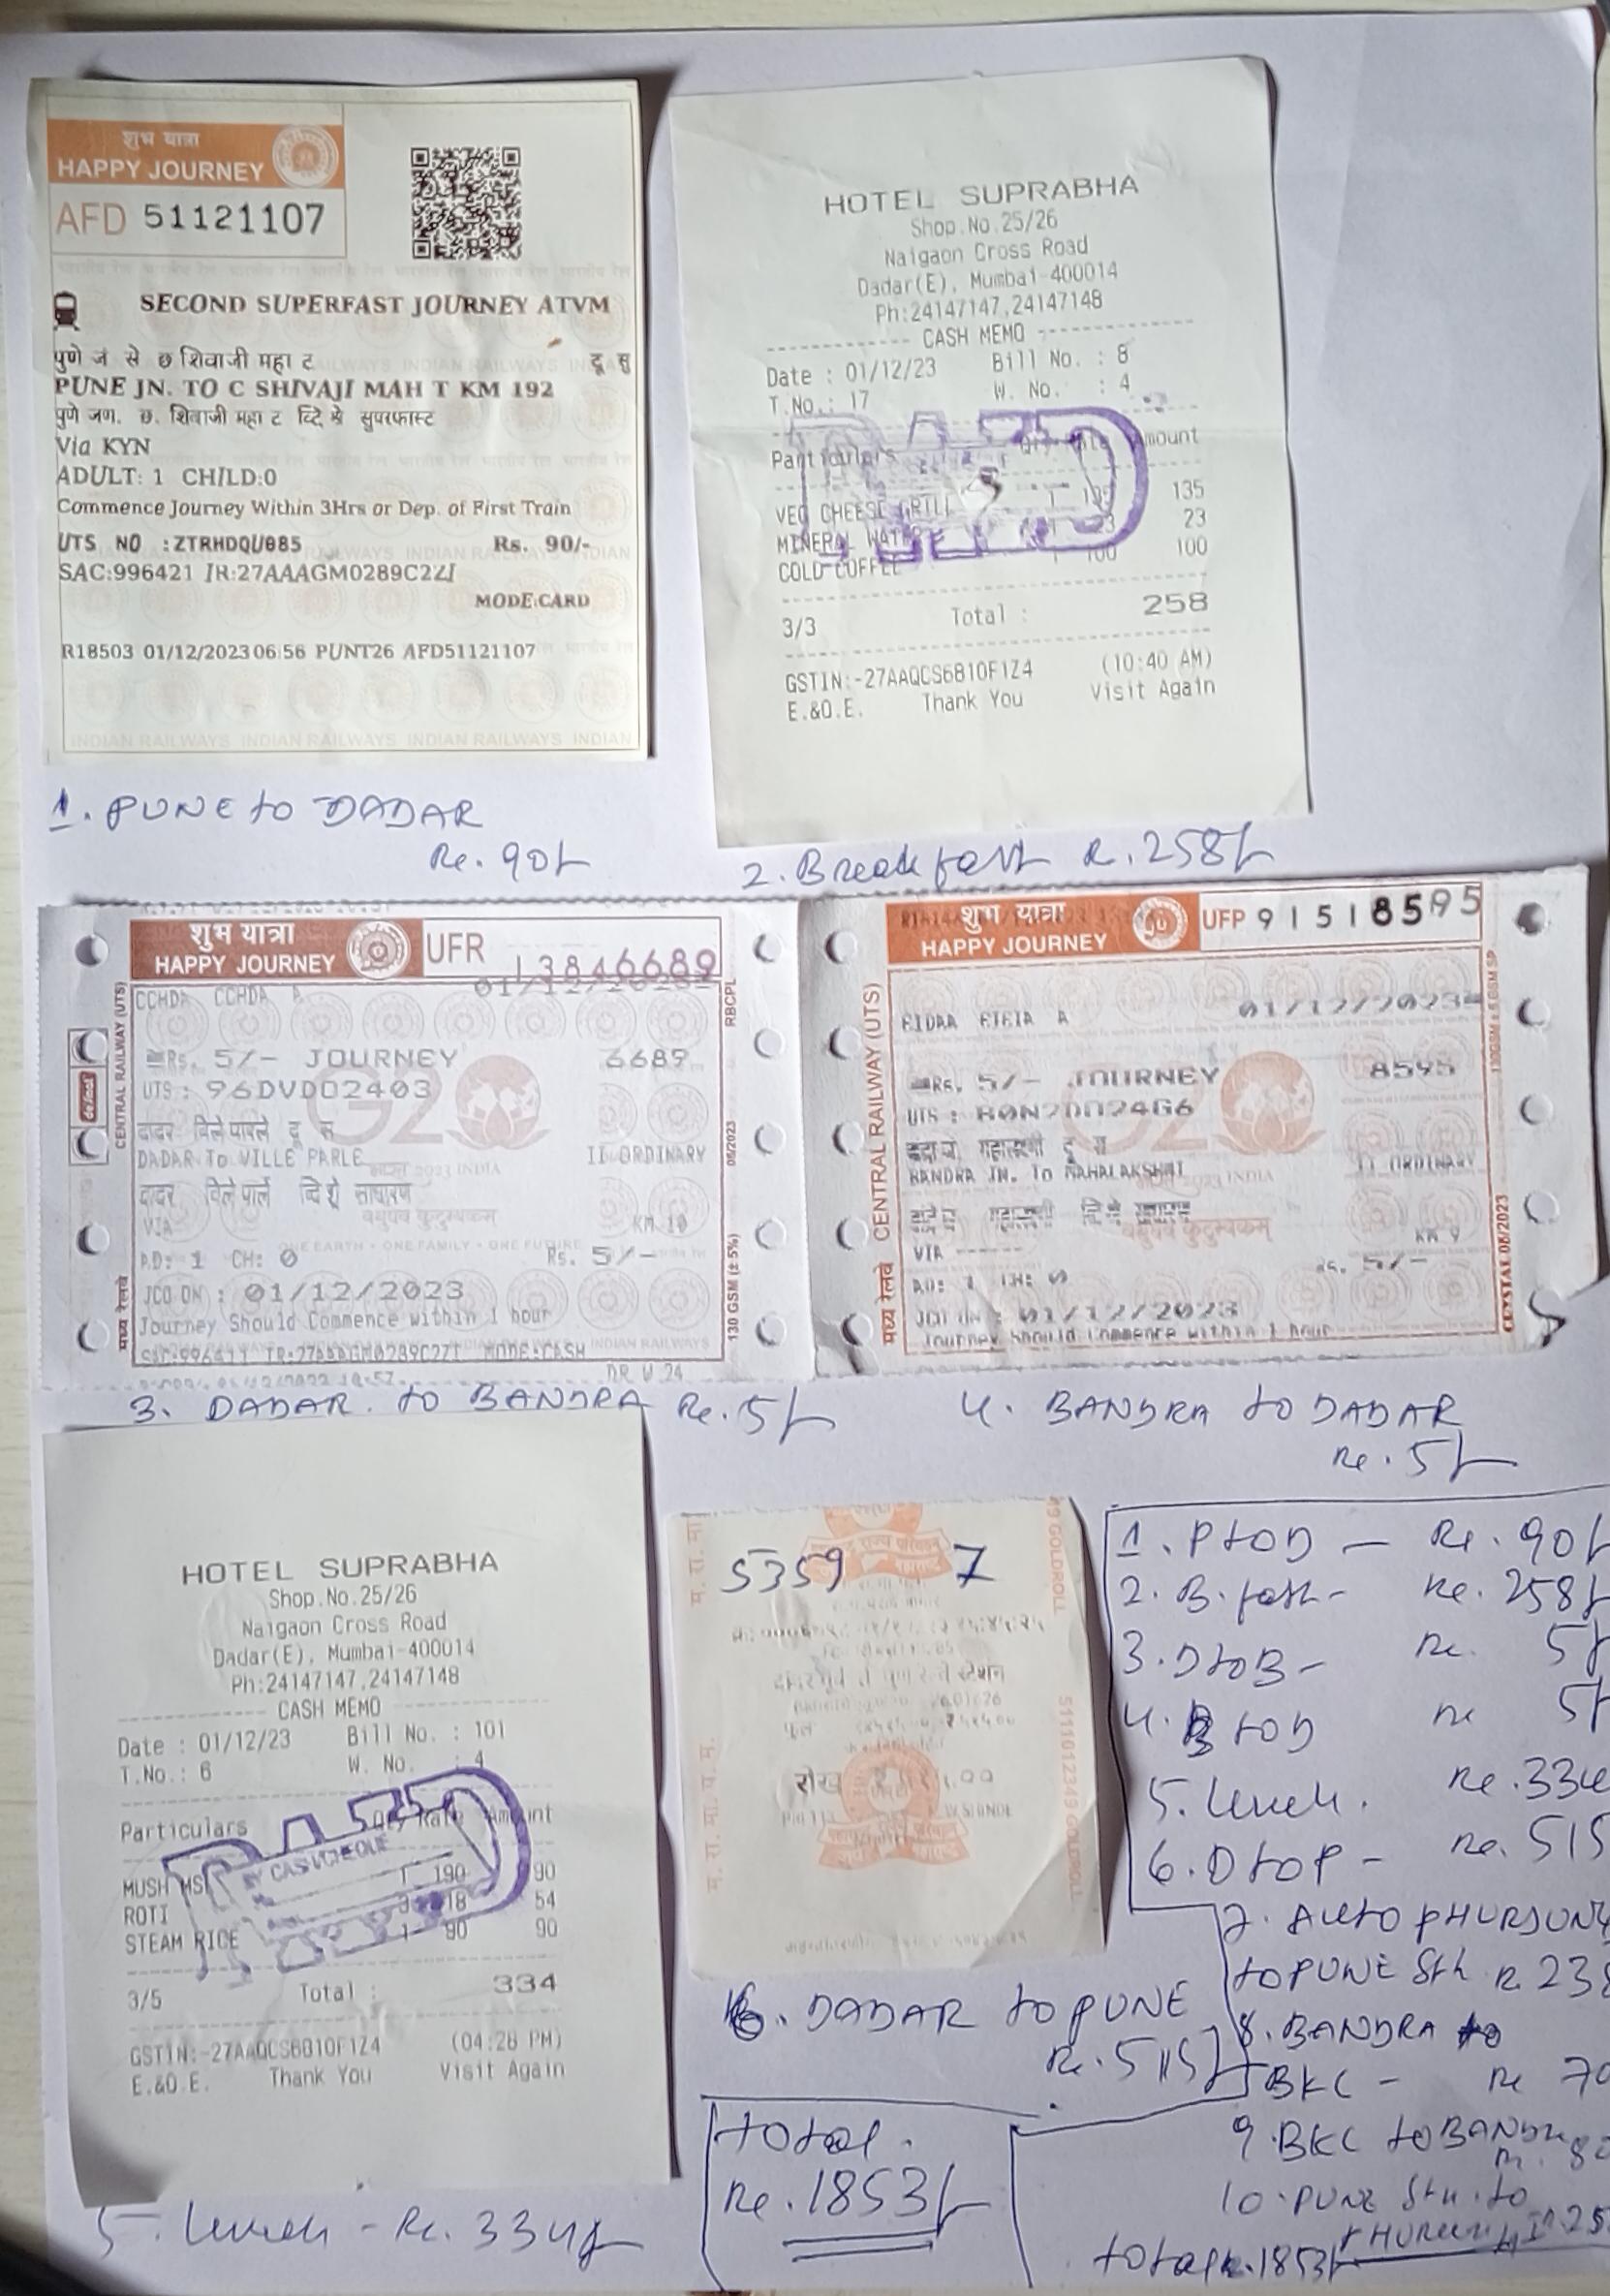 शुभ यात्रा
HAPPY JOURNEY
AFD 51121107
SECOND SUPERFAST JOURNEY ATVM
पुणे जं से छ शिवाजी महा ट दू सु
PUNE JN. TO C SHIVAJI MAH T KM 192
पुणे जण. छ. शिवाजी महा ट व्दि श्रे सुपरफास्ट
Via KYN
ADULT: 1 CHILD:0
Commence Journey Within 3Hrs or Dep. of First Train
UTS NO :ZTRHDQU085 Rs. 90/-
SAC:996421 IR:27AAAGM0289C2ZI
MODE:CARD
R18503 01/12/2023 06:56 PUNT26 AFD51121107
INDIAN RAILWAYS INDIAN RAILWAYS INDIAN RAILWAYS INDIAN
1. PUNE to DADAR
Re. 90/-
HOTEL SUPRABHA
Shop.No.25/26
Naigaon Cross Road
Dadar(E), Mumbai-400014
Ph:24147147,24147148
CASH MEMO
Date : 01/12/23 Bill No. : 8
T.No.: 17 W. No. : 4
Particulars Amount
VEG CHEESE GRILL 1 135 135
MINERAL WATER 1 23 23
COLD COFFEE 1 100 100
3/3 Total : 258
GSTIN:-27AAQCS6810F1Z4 (10:40 AM)
E.&O.E. Thank You Visit Again
2. Breakfast R. 258/-
शुभ यात्रा
HAPPY JOURNEY
UFR 13846689
01/12/2023
CCHDA CCHDA A
Rs. 5/- JOURNEY 6689
UTS : 96DVD02403
दादर विले पारले दू स
DADAR To VILLE PARLE II ORDINARY
दादर विले पार्ले व्दि श्रे साधारण
वसुधैव कुटुम्बकम्
VIA KM 10
ONE EARTH • ONE FAMILY • ONE FUTURE
AD: 1 CH: 0 Rs. 5/-
JCO ON : 01/12/2023
Journey Should Commence within 1 hour
SAC:996411 IR:27AAAGM0289C2ZI MODE:CASH
DR W 24
CENTRAL RAILWAY (UTS)
मध्य रेलवे
RBCPL
08/2023
130 GSM (± 5%)
3. DADAR to BANDRA Re. 5/-
शुभ यात्रा
HAPPY JOURNEY
UFP 91518595
01/12/2023
Rs. 5/- JOURNEY 8595
UTS : B0N2D024G6
BANDRA JN. To MAHALAKSHMI II ORDINARY
वसुधैव कुटुम्बकम्
VIA ------ KM 9
AD: 1 CH: 0 Rs. 5/-
JCO ON : 01/12/2023
Journey Should Commence within 1 hour
CENTRAL RAILWAY (UTS)
मध्य रेलवे
CRYSTAL 08/2023
4. BANDRA to DADAR
Re. 5/-
HOTEL SUPRABHA
Shop.No.25/26
Naigaon Cross Road
Dadar(E), Mumbai-400014
Ph:24147147,24147148
CASH MEMO
Date : 01/12/23 Bill No. : 101
T.No.: 6 W. No. : 4
Particulars Qty Rate Amount
BY CASH/CHEQUE
MUSH MS 1 190 90
ROTI 3 18 54
STEAM RICE 1 90 90
3/5 Total : 334
GSTIN:-27AAQCS6810F1Z4 (04:28 PM)
E.&O.E. Thank You Visit Again
5. Lunch - Re. 334/-
5359 7
रोख
W.SHINDE
5111012349 GOLDROLL
6. DADAR to PUNE
Re. 515/-
1. P to D — Re. 90/-
2. B.fast - Re. 258/-
3. D to B - Re. 5/-
4. B to D Re 5/-
5. Lunch. Re. 334
6. D to P - Re. 515
7. AUTO PHURSUNG
to PUNE Stn R. 238
8. BANDRA to
BKC - Re 70
9. BKC to BANDRA
R. 80
10. PUNE Stn. to
total R. 1853/-
total.
Re. 1853/-